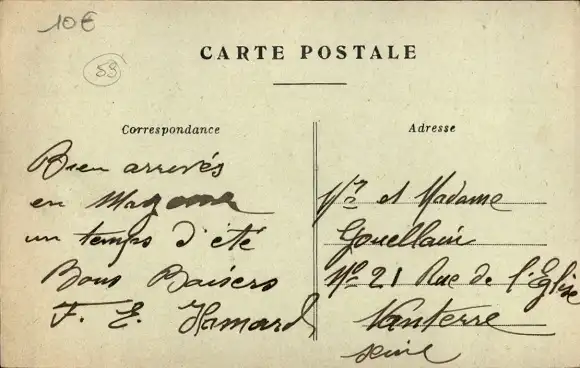 10€
CARTE POSTALE
59
Correspondance
Adresse
Bien arrivés
en
un temps d'été
Bons Baisers
F. E. Hamard
Mr et Madame
Gouellain
No 21 Rue de l'Eglise
Nanterre
Seine